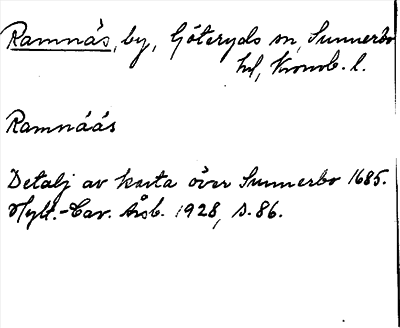 Ramnås, by, Göteryds sn, Sunnerbo
hd, Kronob. l.
Ramnáás
Detalj av karta över Sunnerbo 1685.
Hylt.-Cav. Årsb. 1928, s. 86.